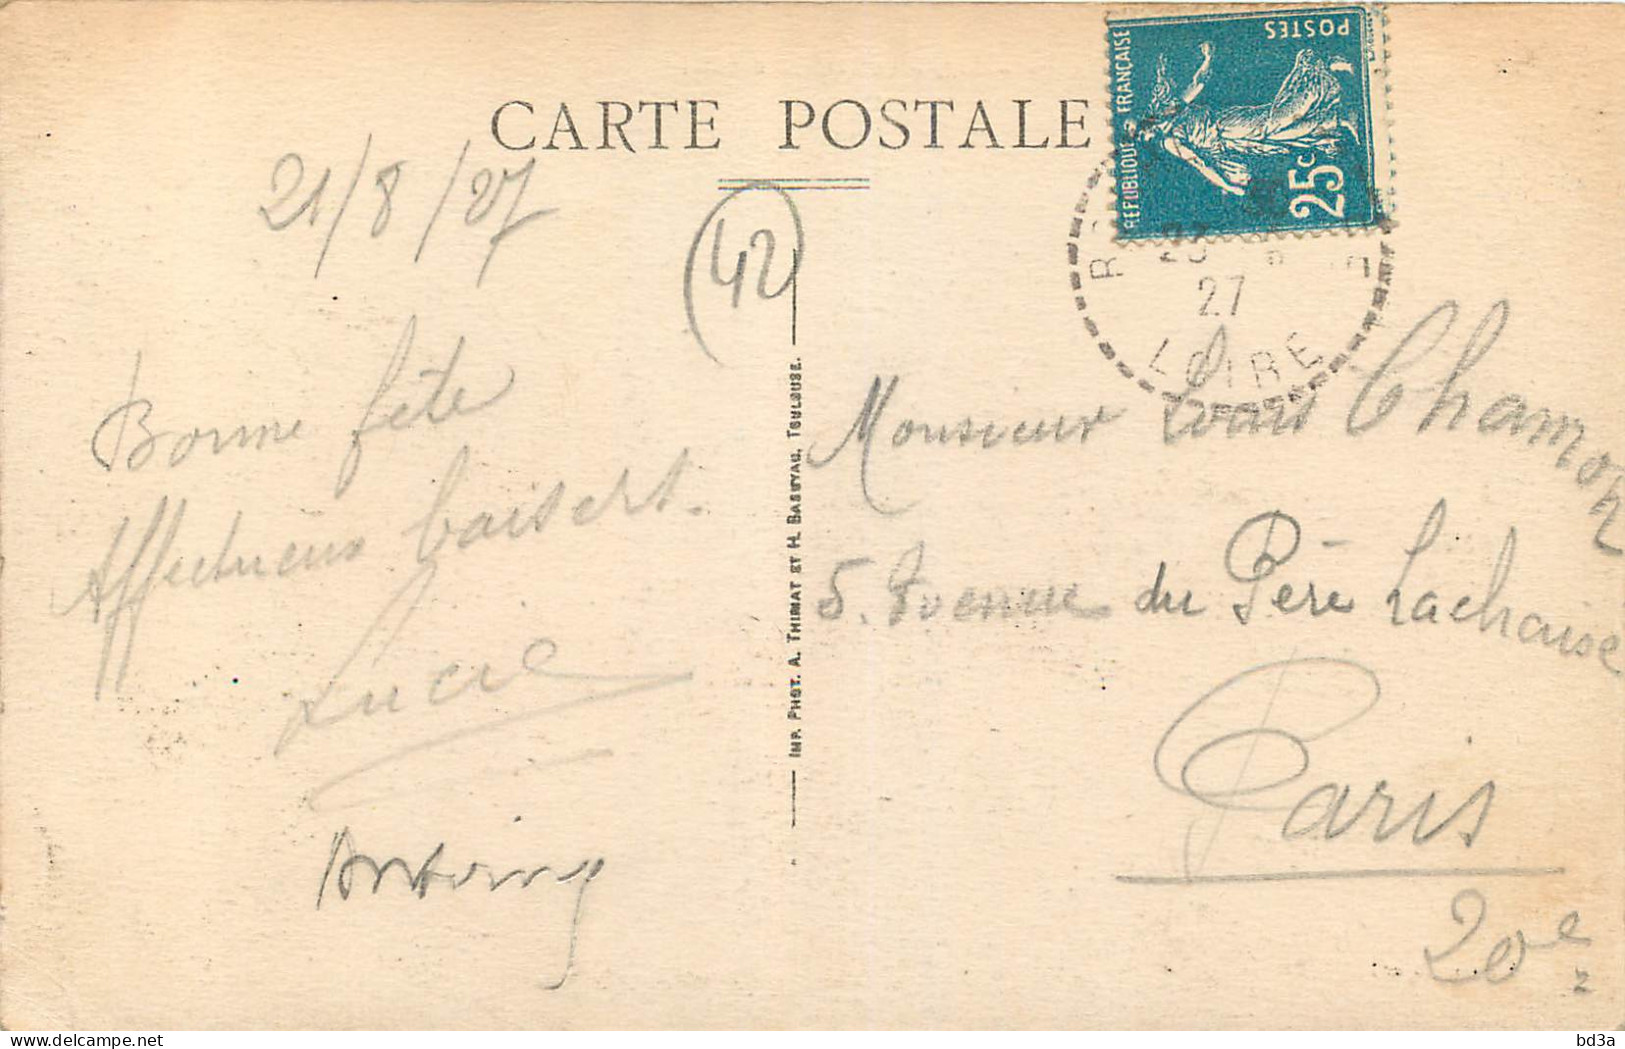 CARTE POSTALE
POSTES
RÉPUBLIQUE FRANÇAISE
25c
27
LOIRE
21/8/27
42
Bonne fête
Affectueux baisers.
Lucie
Monsieur Louis Chamoz
5. Avenue du Père Lachaise
Paris
20e
IMP. PHOT. A. THIRIAT ET H. BASUYAU, TOULOUSE.
bd3a